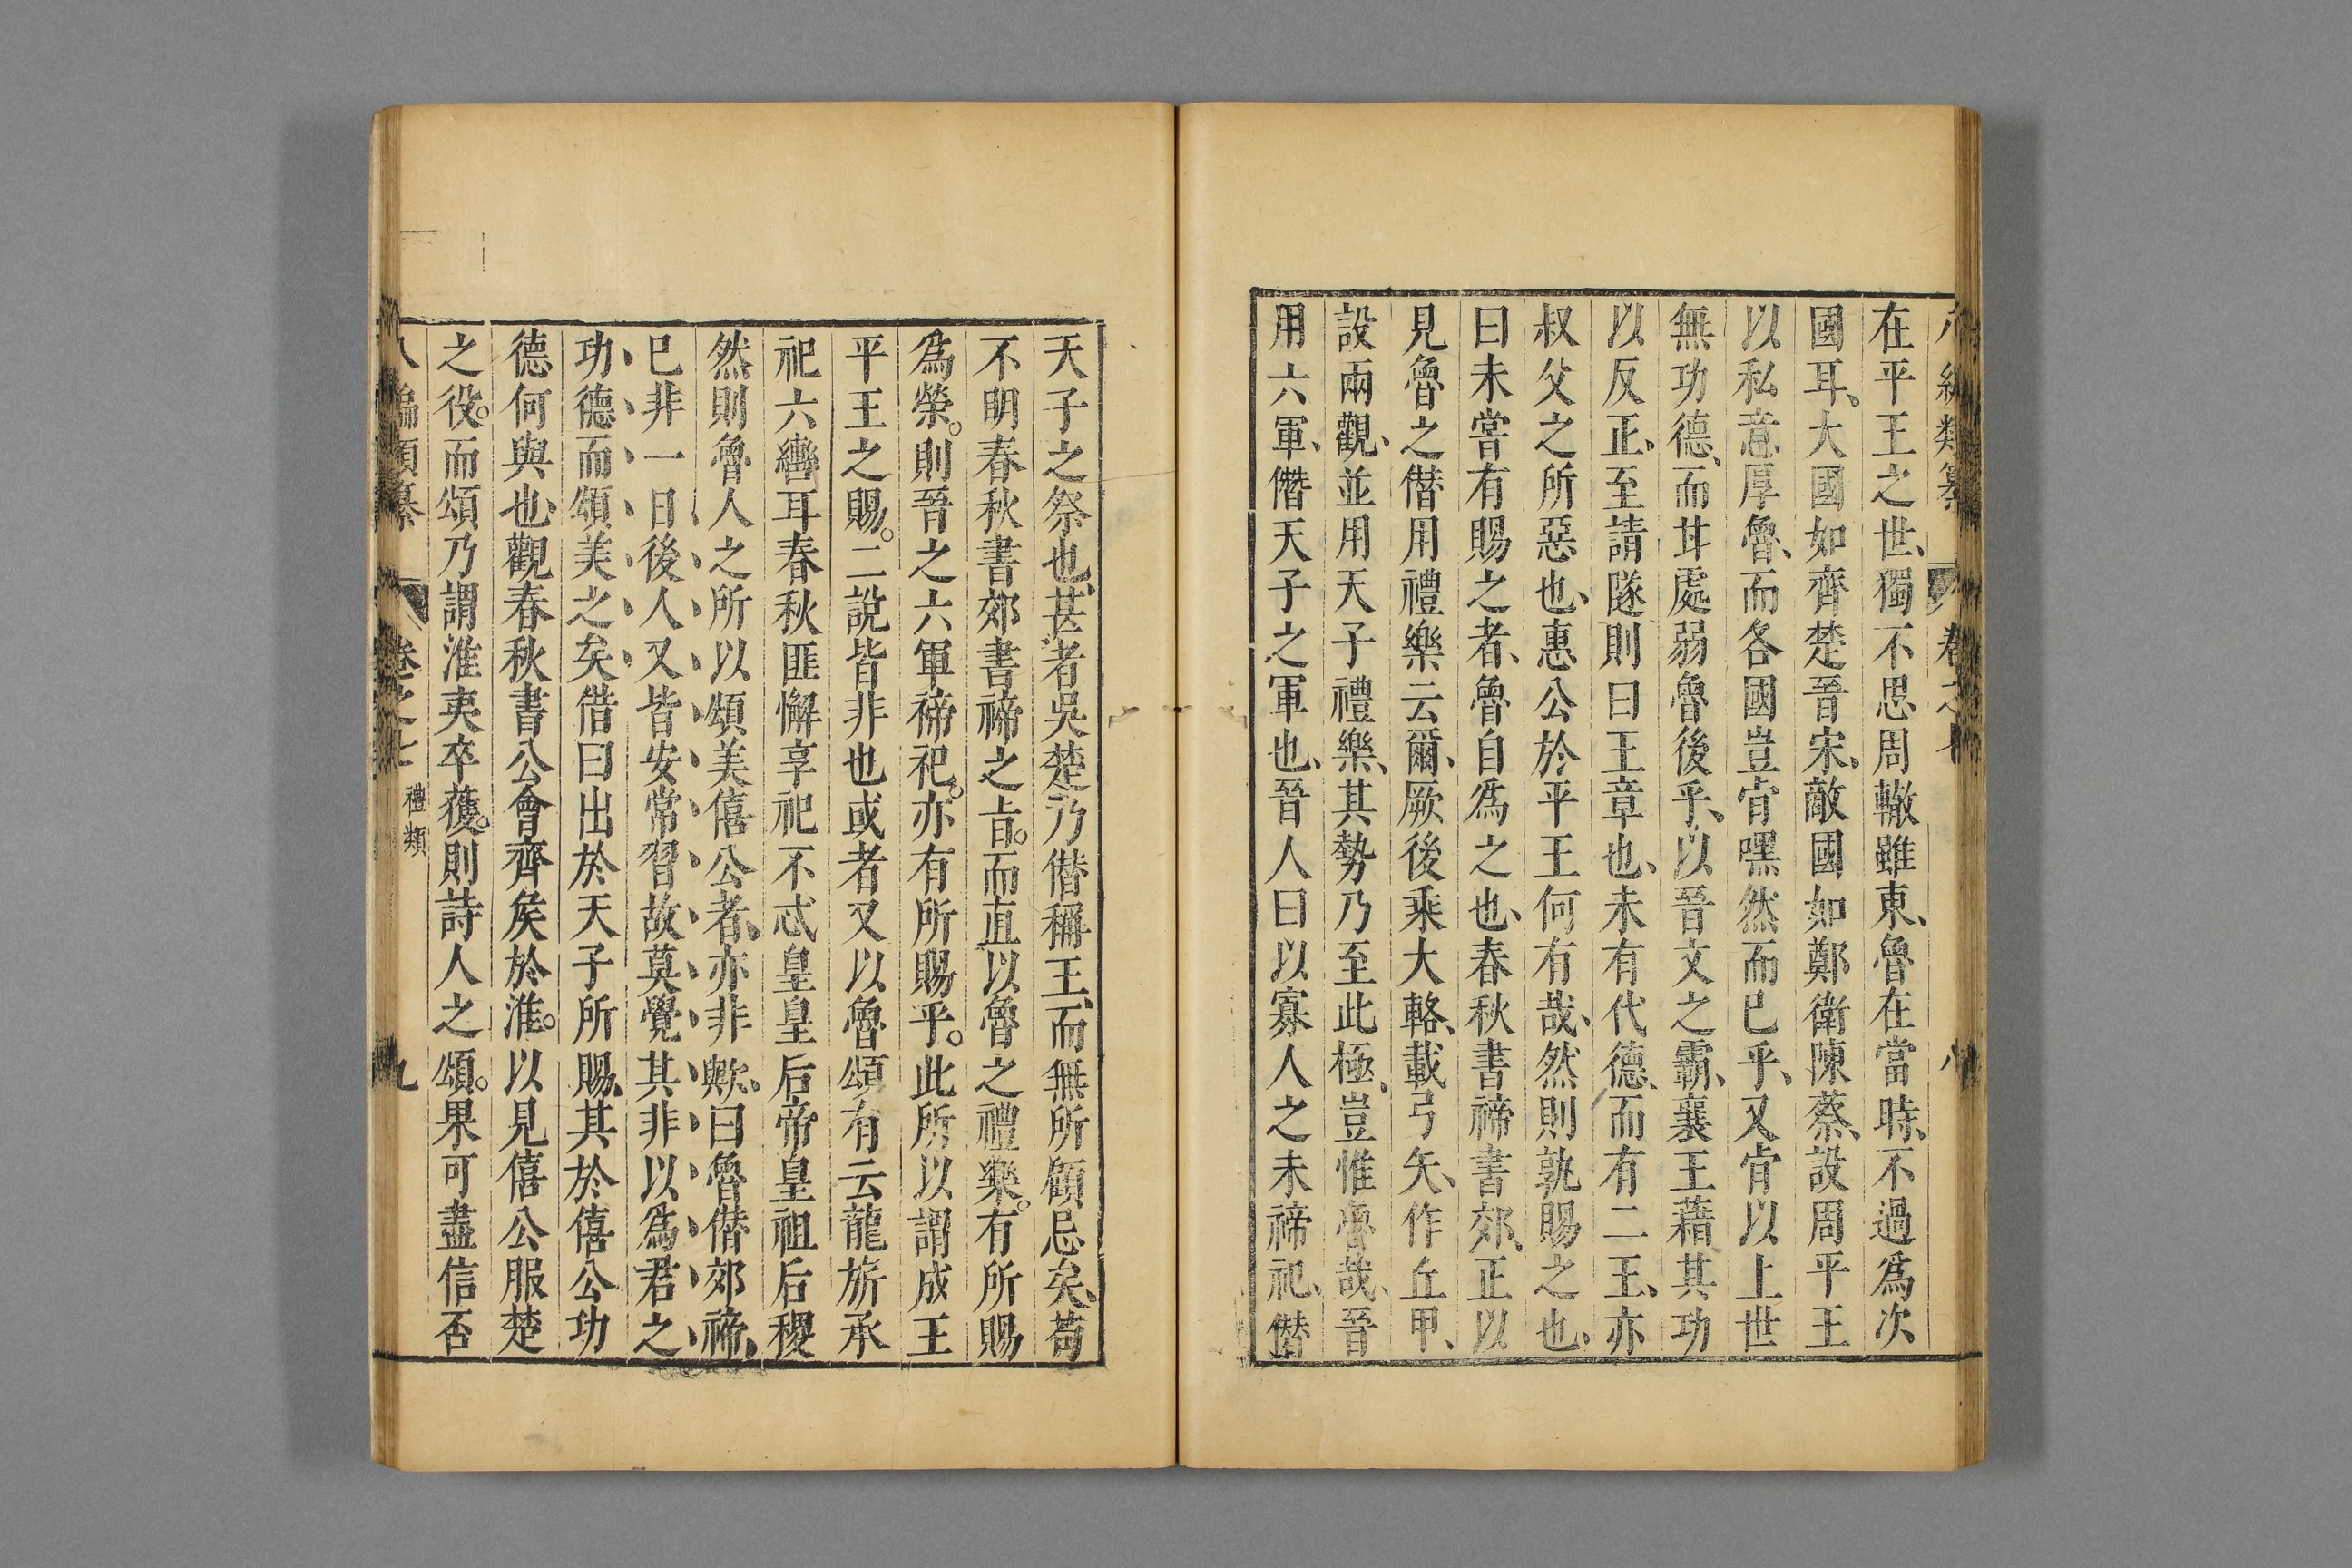 八編類纂 卷之七 八
在平王之世、獨不思周轍雖東、魯在當時、不過爲次
國耳。大國如齊楚晉宋、敵國如鄭衛陳蔡、設周平王
以私意厚魯、而各國豈肯嘿然而已乎、又肯以上世
無功德、而甘處弱魯後乎、以晉文之霸、襄王藉其功
以反正、至請隧則曰王章也、未有代德、而有二王、亦
叔父之所惡也、惠公於平王何有哉、然則孰賜之也、
曰未嘗有賜之者、魯自爲之也、春秋書禘書郊、正以
見魯之僣用禮樂云爾、厥後乘大輅、載弓矢、作丘甲、
設兩觀、並用天子禮樂、其勢乃至此極、豈惟魯哉、晉
用六軍、僭天子之軍也、晉人曰以寡人之未禘祀、僣
天子之祭也、甚者吳楚乃僣稱王、而無所顧忌矣、苟
不明春秋書郊書禘之㫖。而直以魯之禮樂。有所賜
爲榮。則晉之六軍禘祀。亦有所賜乎。此所以謂成王
平王之賜。二說皆非也或者又以魯頌有云龍旂承
祀六轡耳春秋匪懈享祀不忒皇皇后帝皇祖后稷
然則魯人之所以頌美僖公者、亦非歟、曰魯僣郊禘、
已非一日後人又皆安常習故莫覺其非以爲君之
功德而頌美之矣借曰出於天子所賜、其於僖公功
德何與也、觀春秋書公會齊矦於淮。以見僖公服楚
之役。而頌乃謂淮夷卒獲。則詩人之頌。果可盡信否
八編類纂 卷之七 禮類 九